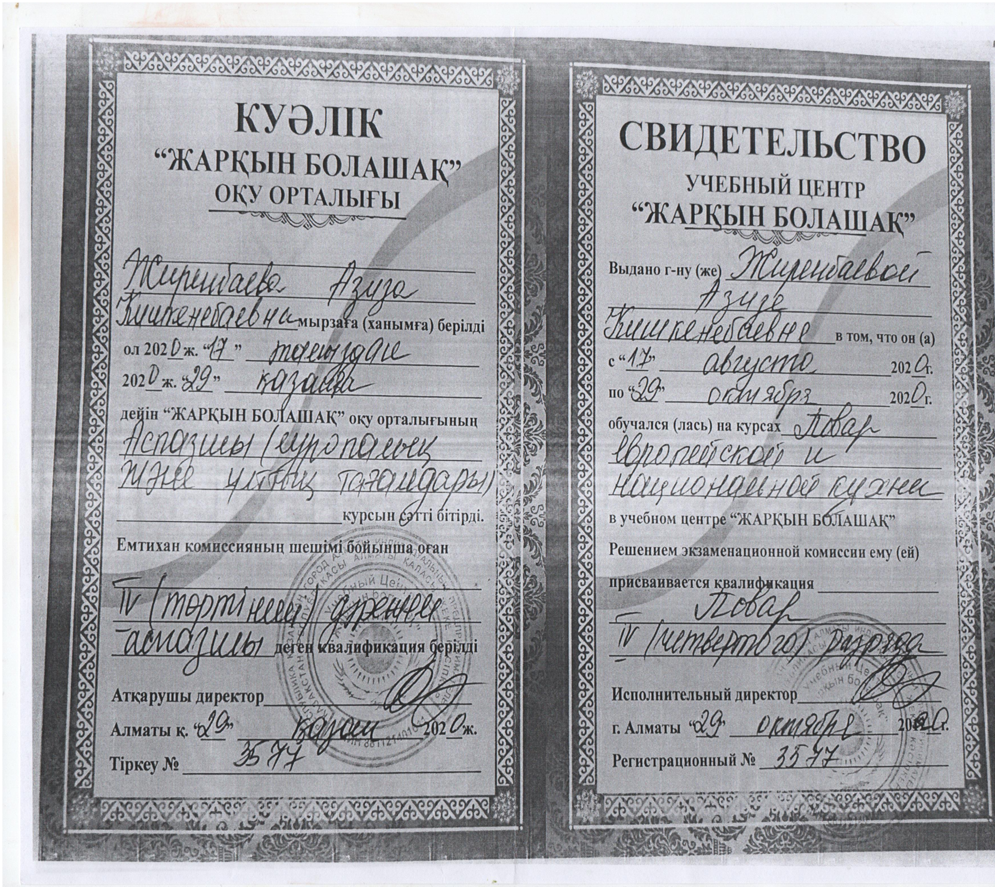 КУӘЛІК
“ЖАРҚЫН БОЛАШАҚ”
ОҚУ ОРТАЛЫҒЫ
Жиренбаева Азиза
Кишкенебаевна мырзаға (ханымға) берілді
ол 2020 ж. “17” тамыздан
2020 ж. “29” қазанға
дейін “ЖАРҚЫН БОЛАШАҚ” оқу орталығының
Аспазшы (европалық
және ұлттық тағамдары)
курсын сәтті бітірді.
Емтихан комиссияның шешімі бойынша оған
IV (төртінші) дәрежелі
аспазшы деген квалификация берілді
Атқарушы директор
Алматы қ. “29” қазан 2020 ж.
Тіркеу № 3577
СВИДЕТЕЛЬСТВО
УЧЕБНЫЙ ЦЕНТР
“ЖАРҚЫН БОЛАШАҚ”
Выдано г-ну (же) Жиренбаевой
Азизе
Кишкенебаевне в том, что он (а)
с “17” августа 2020 г.
по “29” октября 2020 г.
обучался (лась) на курсах Повар
европейской и
национальной кухни
в учебном центре “ЖАРҚЫН БОЛАШАҚ”
Решением экзаменационной комиссии ему (ей)
присваивается квалификация
Повар
IV (четвертого) разряда
Исполнительный директор
г. Алматы “29” октября 2020 г.
Регистрационный № 3577